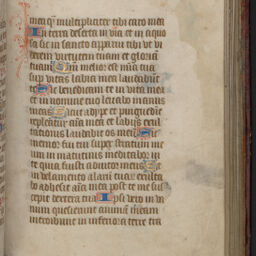 meq̄ multipliciter tibi caro mea
In terra deserta in via et in aquo
sa sic in sancto apparui tibi ut vi
derem virtutem tuam et gloriā
tuam Qm̄ melior est mīa tua
sup vitas labia mea laudabūt
te Sic benedicam te in vita mea
et in nomine tuo levabo manus
meas Sicut adipe et pinguedīe
repleatur aīa mea et labijs exul
tationis laudabit os meū Sic
memor fui tui super stratum me
um in matutinis meditabor in
te quia fuisti adiutor meus Et
in velamento alarū tuar̄ exulta
bo adhesit aīa mea post te me sus
cepit dextera tua Ipsi vero in va
num quesierunt animā meam
introibunt in inferiora terre tra